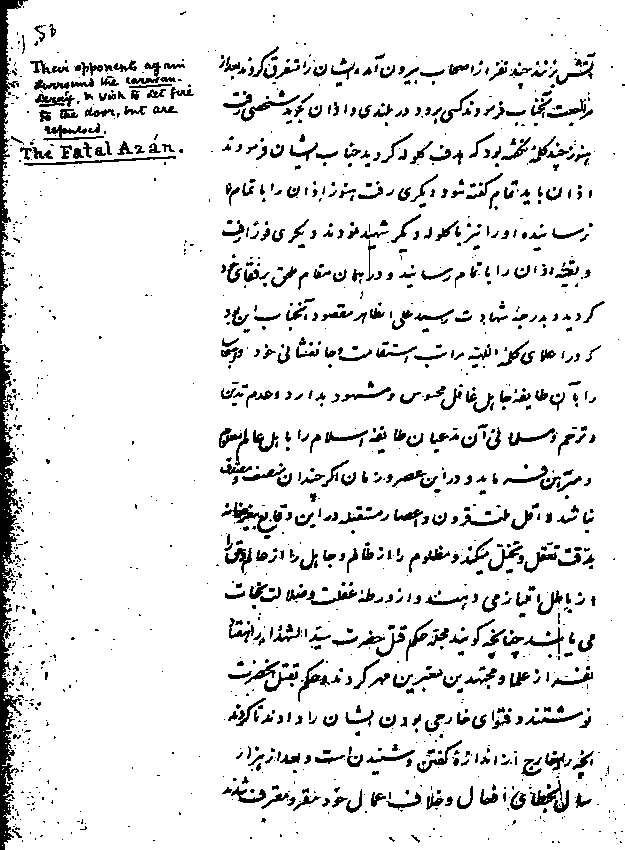 58
Their opponents again
surround the caravan-
seray, & wish to set fire
to the door, but are
repulsed.
The Fatal Azán.
آتش زنند چند نفر از اصحاب بیرون آمده ایشان را متفرق کردند بعد از
مراجعت آنجناب فرمودند کسی برود در بلندی و اذان بگوید شخصی رفت
هنوز چند کلمه نگفته بود که هدف گلوله گردید جناب ایشان فرمودند
اذان باید تمام گفته شود دیگری رفت هنوز اذان را با تمام
نرسانیده او را نیز با گلوله دیگر شهید نمودند دیگری فورا رفت
و بقیه اذان را باتمام رسانید و در همان مقام ملحق برفقای خود
گردید و بدرجه شهادت رسید علی الظاهر مقصود آنجناب این بود
که در اعلای کلمة اللهیه مراتب استقامت و جانفشانی خود و اصحاب
را بآن طایفه جاهل غافل محسوس و مشهود بدارد و عدم تدین
و ترحم و مسلمانی آن مدعیان طایفه اسلام را باهل عالم معلوم
و مبرهن فرماید و در این عصر و زمان اگر چندان منصف و
نباشد لا اقل ملت قرون و اعصار مستقبل در این وقایع
بدقت تعقل و تخیل میکند و مظلوم را از ظالم و جاهل را از عالم و حق را
از باطل امتیاز می دهند و از ورطه غفلت و ضلالت نجات
می یابند چنانچه گویند مجتهد حکم قتل حضرت سید الشهدا را
نفر از علما و مجتهدین معتبرین مهر کردند و حکم بقتل آنحضرت
نوشتند و فتوای خارجی بودن ایشان را دادند تا کردند
آنچه را خارج از اندازه گفتن و شنیدن است و بعد از هزار
سال بخطای افعال و خلاف اعمال خود مقر و معترف شدند